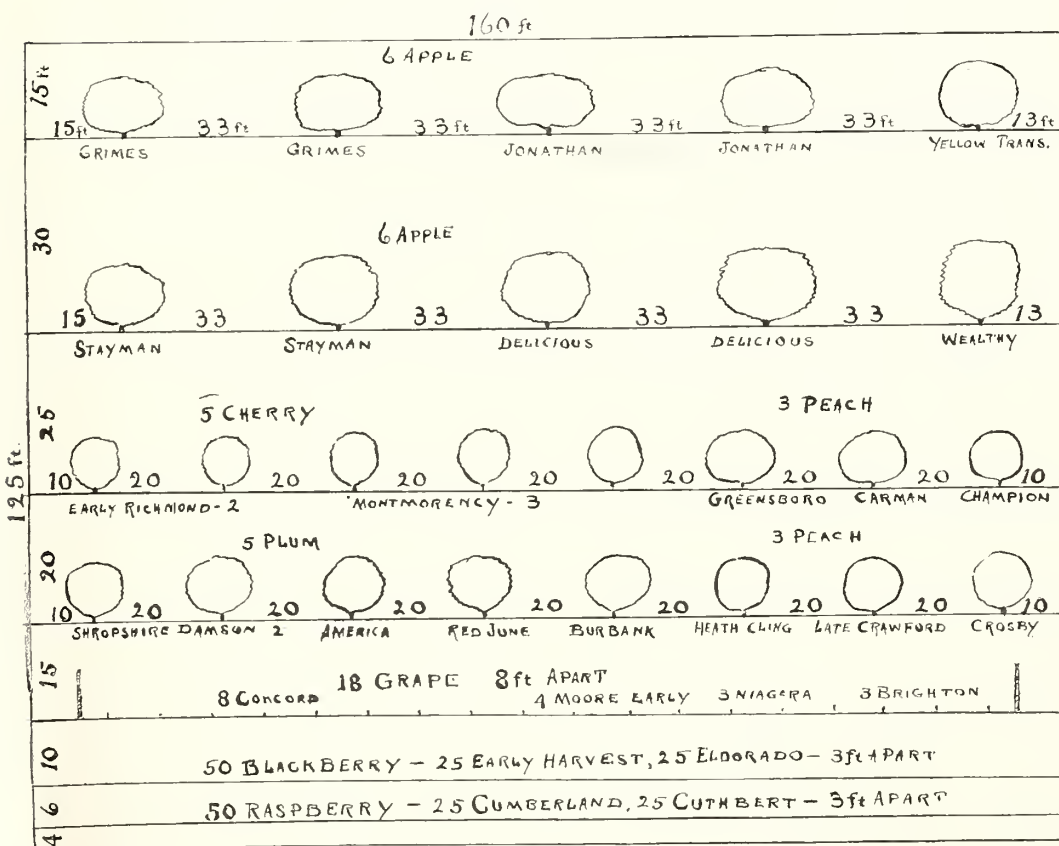 160 ft
6 APPLE
15 ft
15 ft 33 ft 33 ft 33 ft 33 ft 13 ft
GRIMES GRIMES JONATHAN JONATHAN YELLOW TRANS.
30
6 APPLE
15 33 33 33 33 13
STAYMAN STAYMAN DELICIOUS DELICIOUS WEALTHY
125 ft.
25
5 CHERRY 3 PEACH
10 20 20 20 20 20 20 20 10
EARLY RICHMOND - 2 MONTMORENCY - 3 GREENSBORO CARMAN CHAMPION
20
5 PLUM 3 PEACH
10 20 20 20 20 20 20 20 10
SHROPSHIRE DAMSON 2 AMERICA RED JUNE BURBANK HEATH CLING LATE CRAWFORD CROSBY
15
18 GRAPE 8 ft APART
8 CONCORD 4 MOORE EARLY 3 NIAGERA 3 BRIGHTON
10
50 BLACKBERRY - 25 EARLY HARVEST, 25 ELDORADO - 3 ft APART
6
50 RASPBERRY - 25 CUMBERLAND, 25 CUTHBERT - 3 ft APART
4